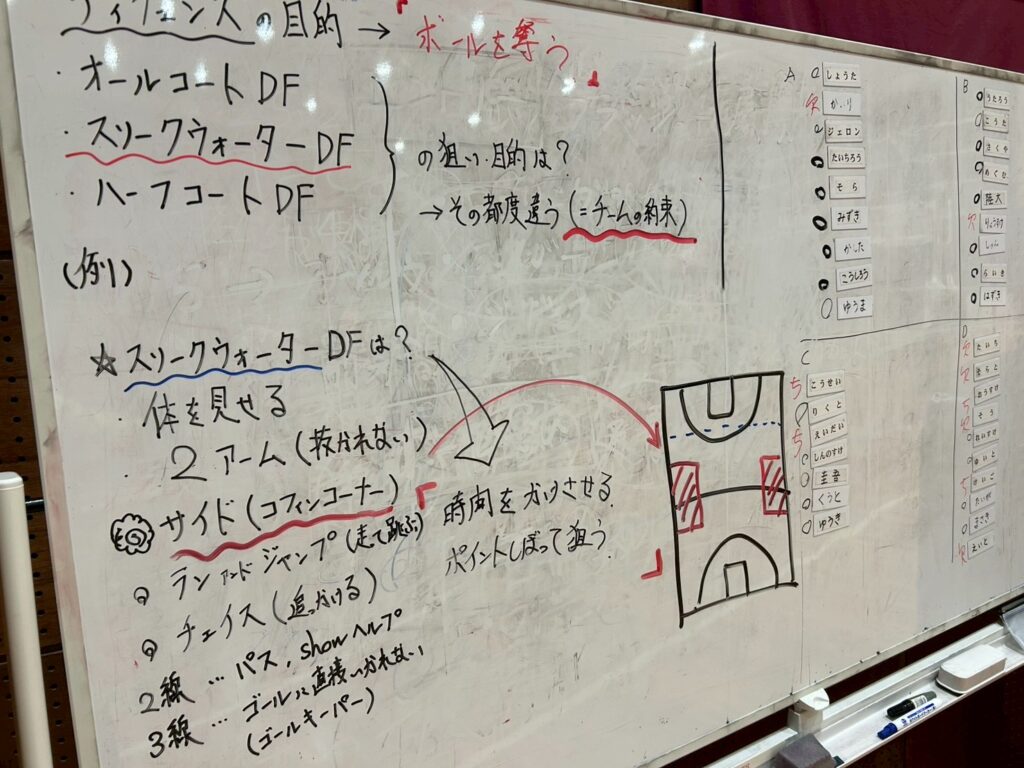 ディフェンスの目的 → 「ボールを奪う」
・オールコートDF
・スリークウォーターDF
・ハーフコートDF
の狙い・目的は？
→その都度違う(=チームの約束)
(例)
☆スリークウォーターDFは？
・体を見せる
2アーム(抜かれない)
サイド(コフィンコーナー)
ランアンドジャンプ(走って跳ぶ)
チェイス(追っかける)
2線 … パス, showヘルプ
3線 … ゴールに直接いかれない
(ゴールキーパー)
「時間をかけさせる
ポイントしぼって狙う.」
A
しょうた
欠 か.り
ジェロン
たいちろう
そら
みずき
かした
こうしろう
ゆうま
B
うたろう
こうた
さくや
めぐむ
しゅん
らいき
はずき
C
ち こうせい
りくと
ち えいだい
しんのすけ
くうと
ゆうき
D
欠 たいち
おうすけ
そう
れいすけ
ゆいと
ち けいご
たいが
まさき
欠 えいと